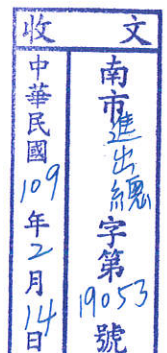 收文
南市進出總字第19053號
中華民國109年2月14日